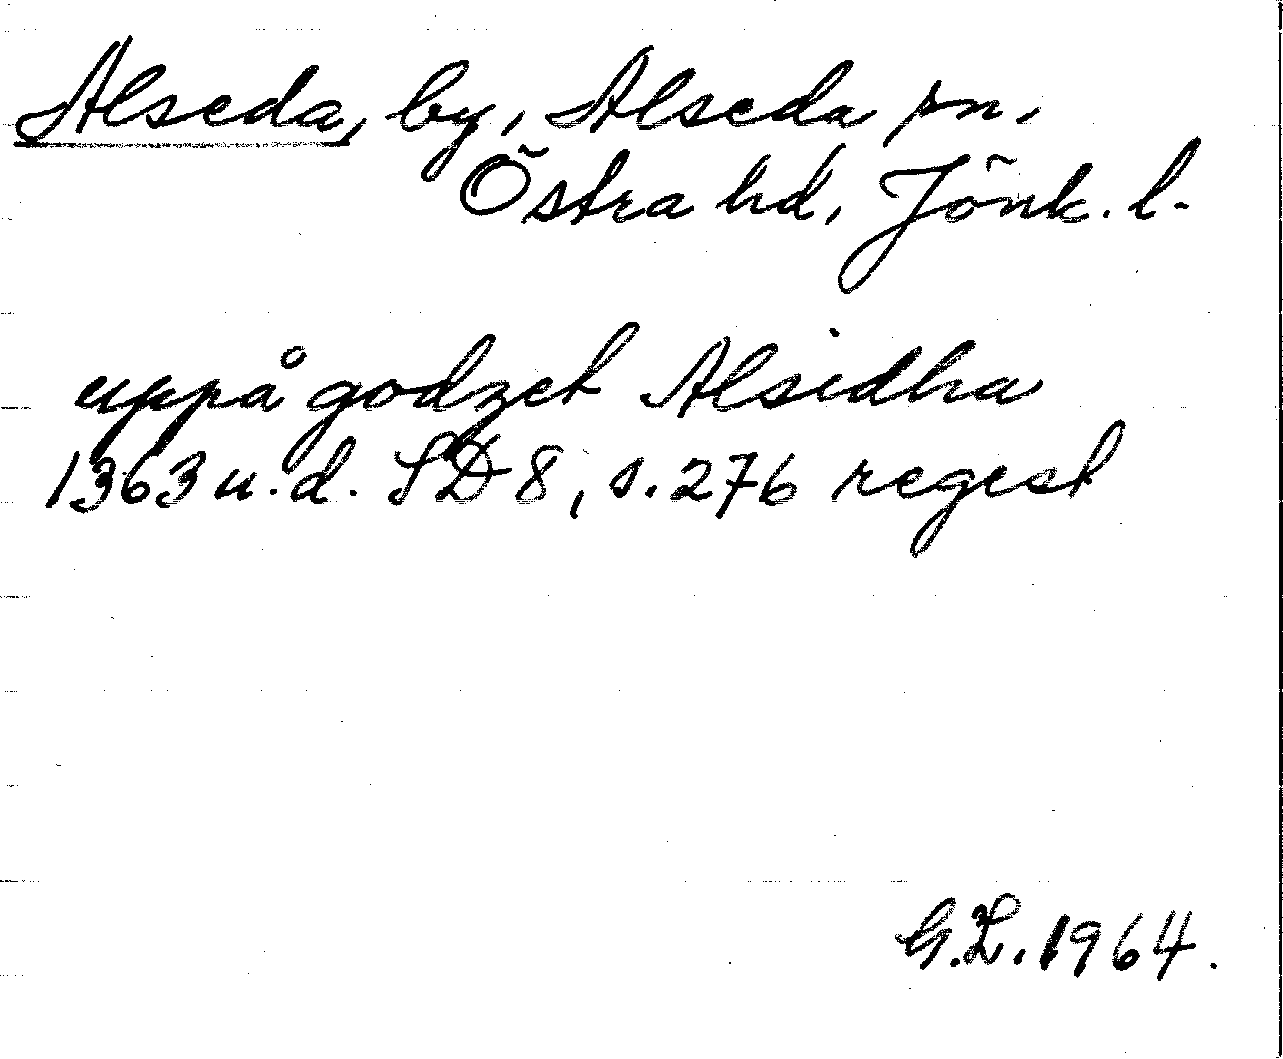 Alseda, by, Alseda sn.
Östra hd, Jönk. l.
uppå godzet Alsidha
1363 u.d. SD 8, s. 276 regest
G.L. 1964.